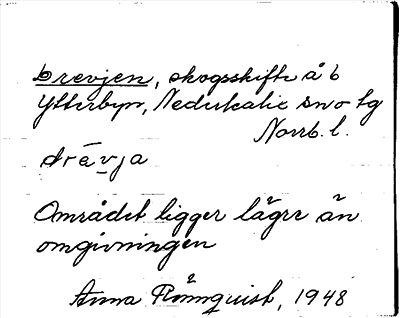 Drevjen, skogsskifte å b
Ytterbyn, Nederkalix sn o tg
Norrb. l.
drävja
Området ligger lägre än
omgivningen
Anna Rönnquist, 1948